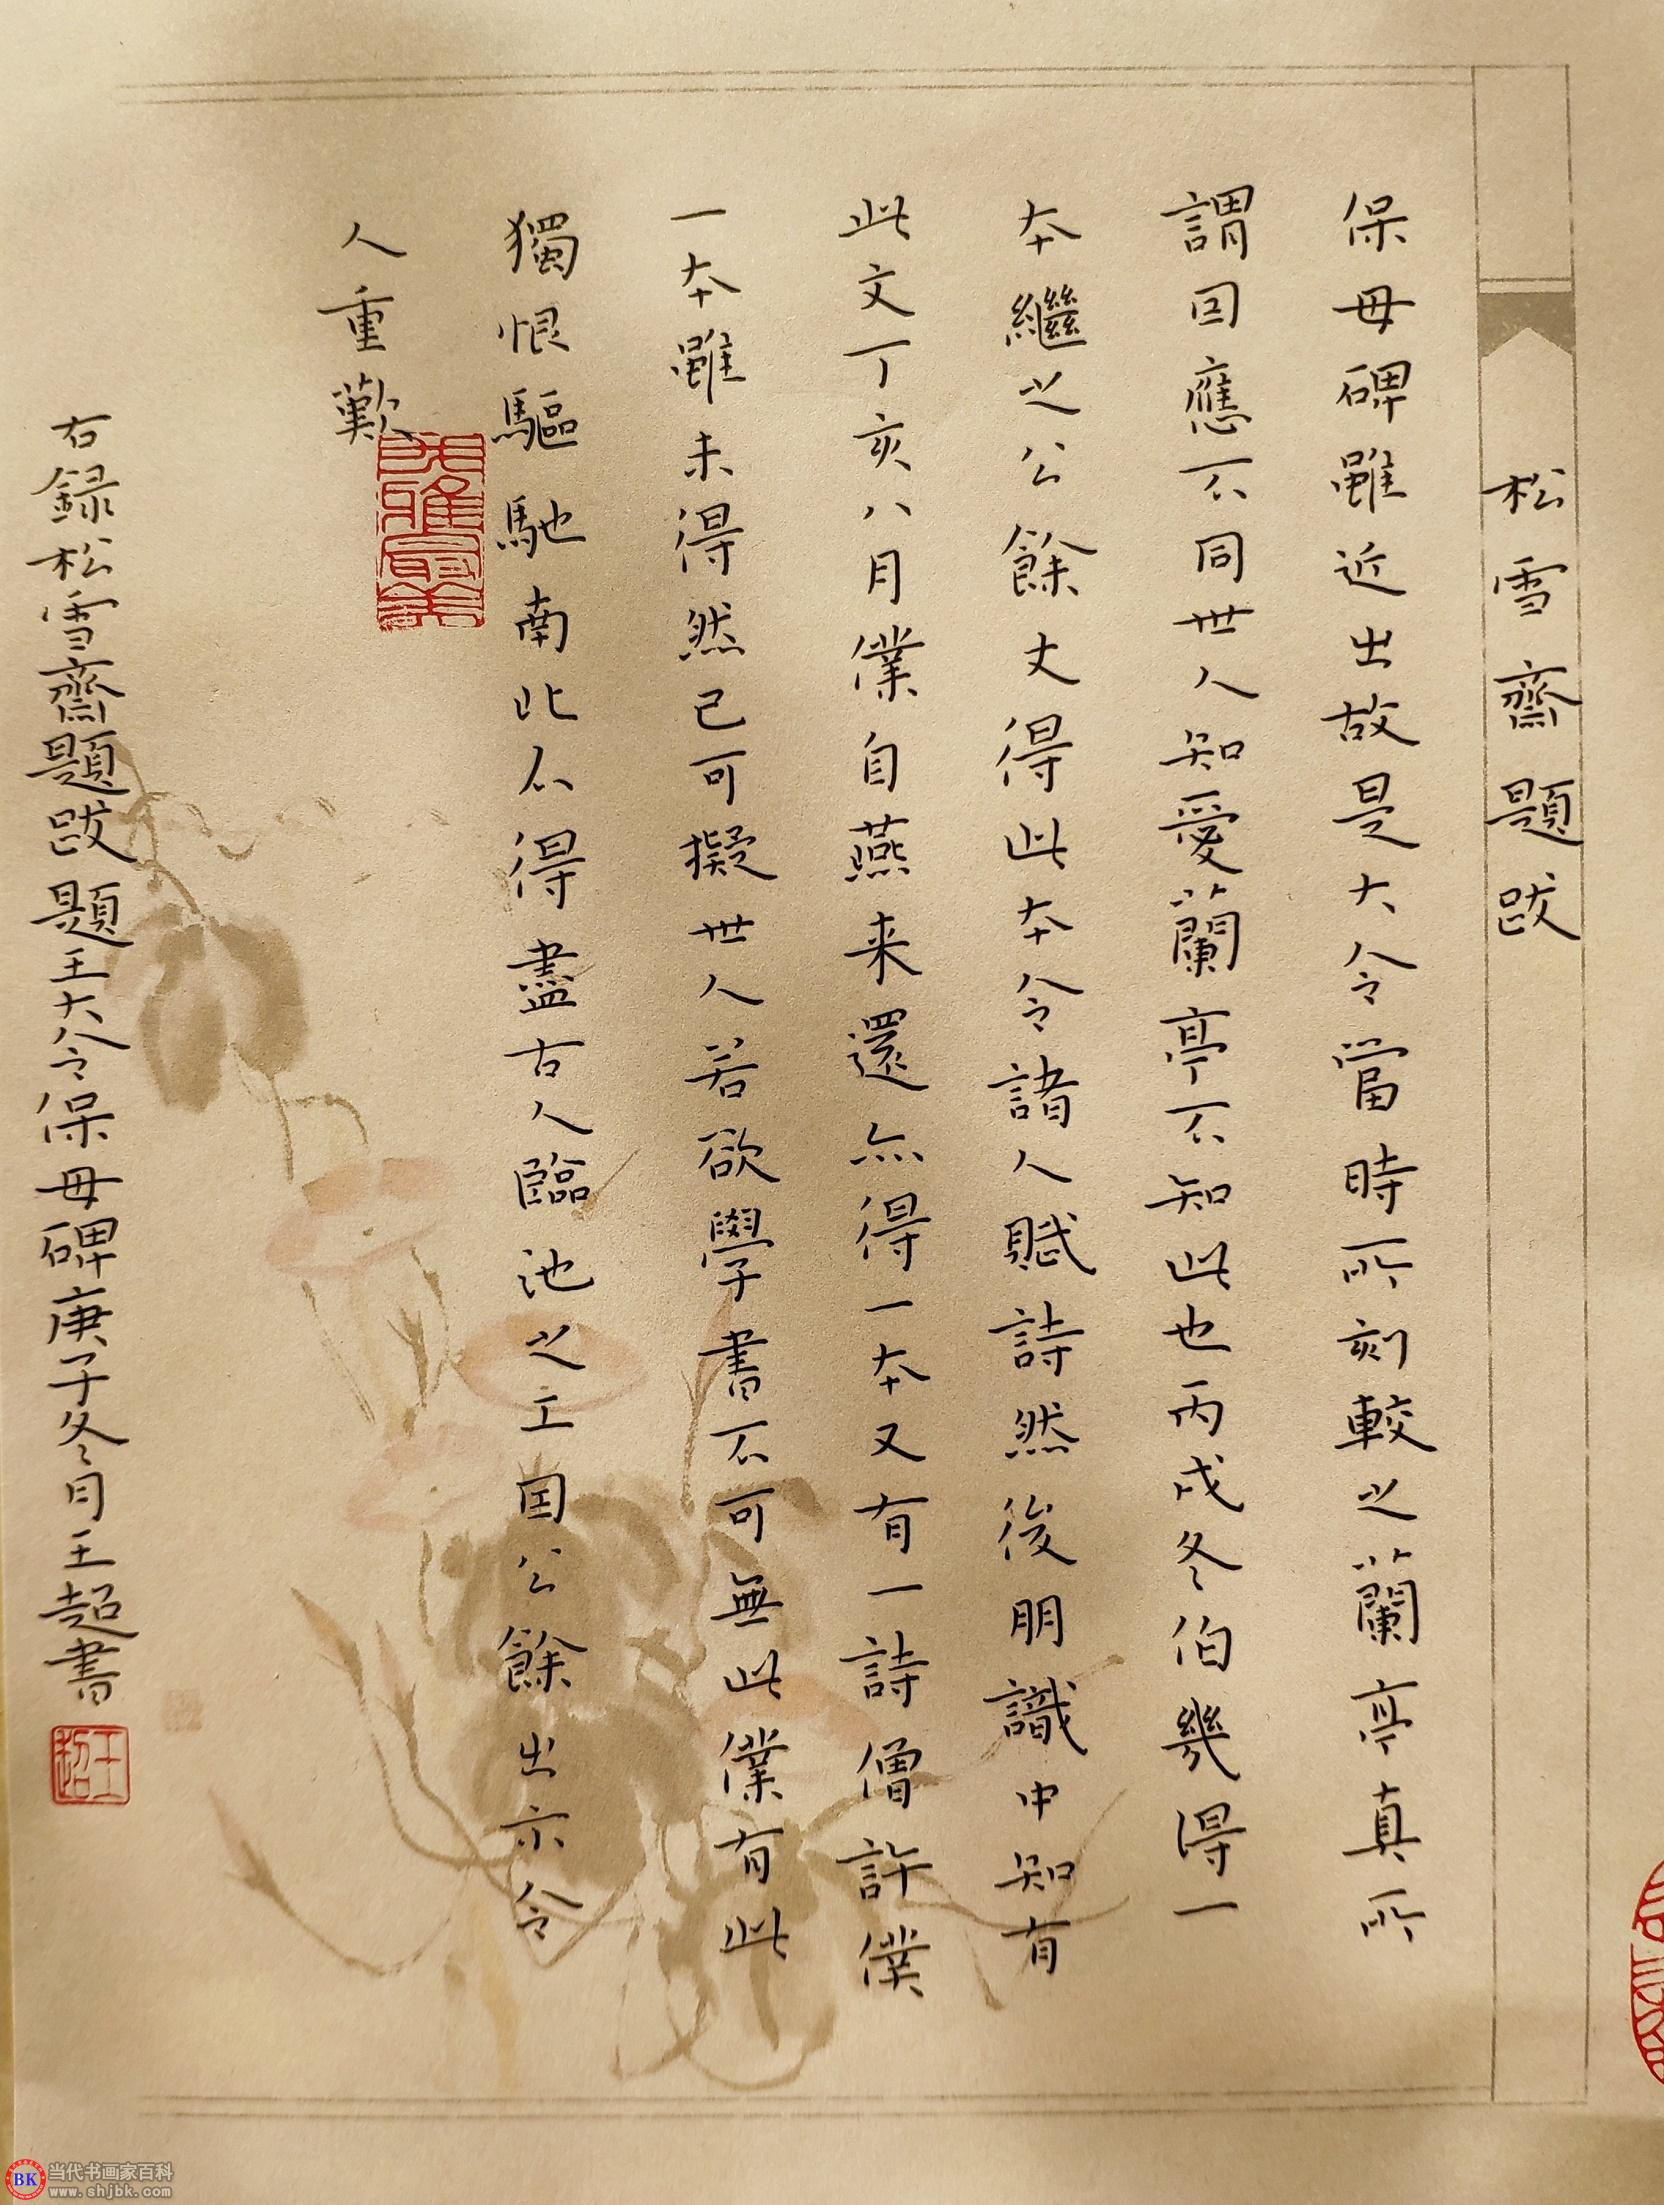 松雪齋題跋
保母碑雖近出故是大令當時所刻較之蘭亭真所
謂因應不同世人知愛蘭亭不知此也丙戌冬伯幾得一
本繼之公餘丈得此本令諸人賦詩然後朋識中知有
此文丁亥八月僕自燕来還亦得一本又有一詩僧許僕
一本雖未得然已可擬世人若欲學書不可無此僕有此
獨恨驅馳南北不得盡古人臨池之工因公餘出示令
人重歎
右録松雪齋題跋題王大令保母碑庚子冬月王超書
王超
当代书画家百科
www.shjbk.com
BK